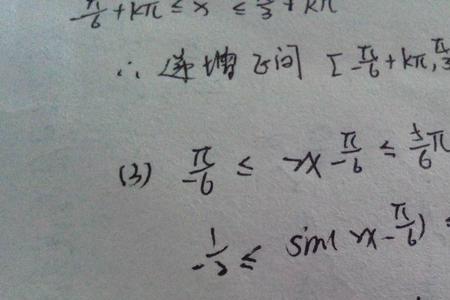 -π/6 + kπ ≤ x ≤ π/3 + kπ
∴ 递增区间 [-π/6 + kπ, π/3
(3) -π/6 ≤ 2x - π/6 ≤ 5/6 π
-1/2 ≤ sin(2x - π/6)